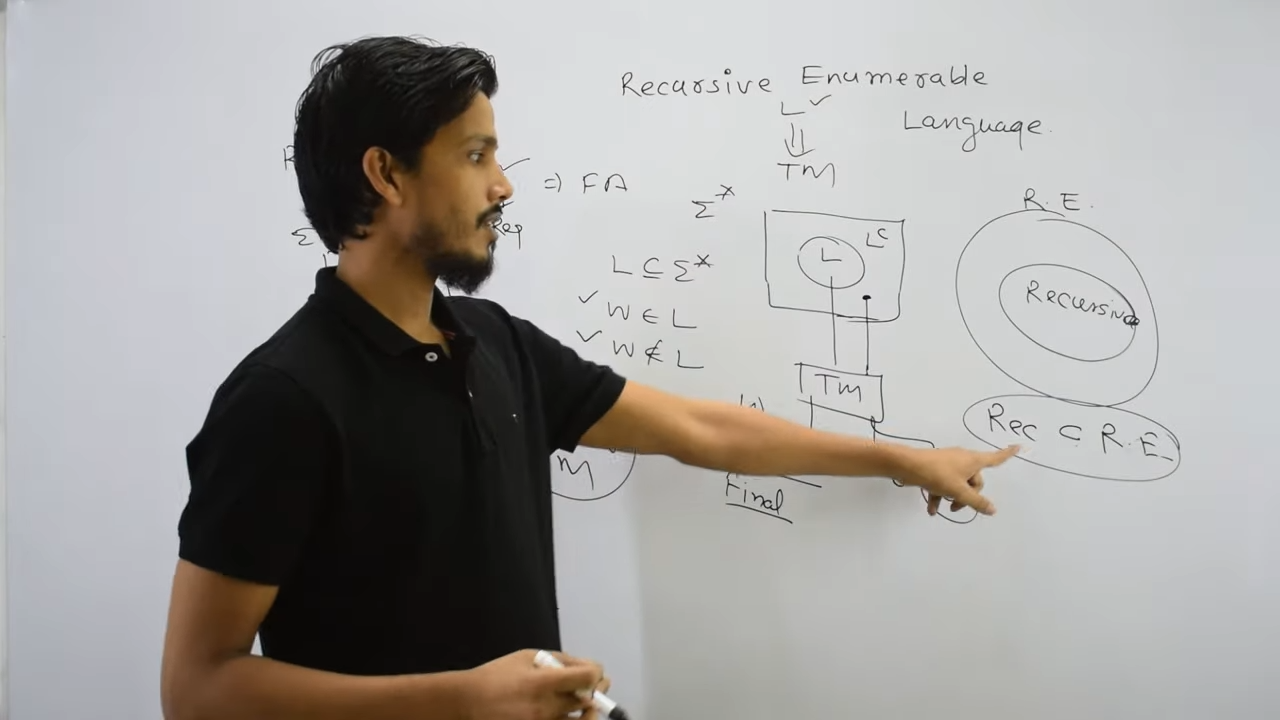 Recursive Enumerable
Language.
L ✓
⇓
TM
✓
⇒ FA
Reg
Σ
Σ*
L ⊆ Σ*
✓ W ∈ L
✓ W ∉ L
L
Lᶜ
TM
Final
M
R.E.
Recursive
Rec ⊂ R.E.